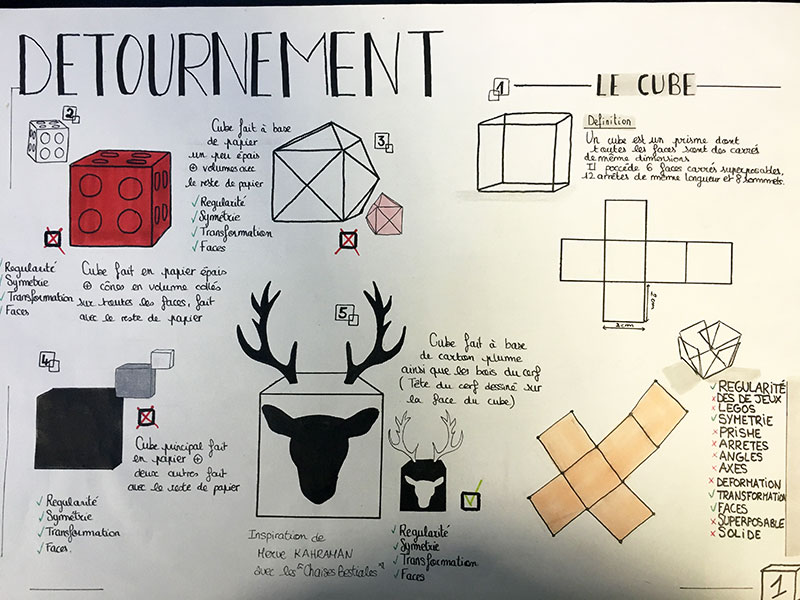 DETOURNEMENT
1
LE CUBE
Définition
Un cube est un prisme dont
toutes les faces sont des carrés
de même dimensions
Il possède 6 faces carrés superposables,
12 arrêtes de même longueur et 8 sommets.
3cm
3cm
2
Regularité
Symetrie
Transformation
Faces
Cube fait en papier épais
⊕ cônes en volume collés
sur toutes les faces, fait
avec le reste de papier
3
Cube fait à base
de papier
un peu épais
⊕ volumes avec
le reste de papier
Regularité
Symétrie
Transformation
Faces
4
Cube principal fait
en papier ⊕
deux autres fait
avec le reste de papier
Regularité
Symétrie
Transformation
Faces.
5
Cube fait à base
de carton plume
ainsi que les bois du cerf
(Tête du cerf dessiné sur
la face du cube)
Inspiration de
Merve KAHRAMAN
avec les "Chaises Bestiales"
Regularité
Symetrie
Transformation
Faces
REGULARITÉ
DES DE JEUX
LEGOS
SYMETRIE
PRISME
ARRETES
ANGLES
AXES
DEFORMATION
TRANSFORMATION
FACES
SUPERPOSABLE
SOLIDE
1